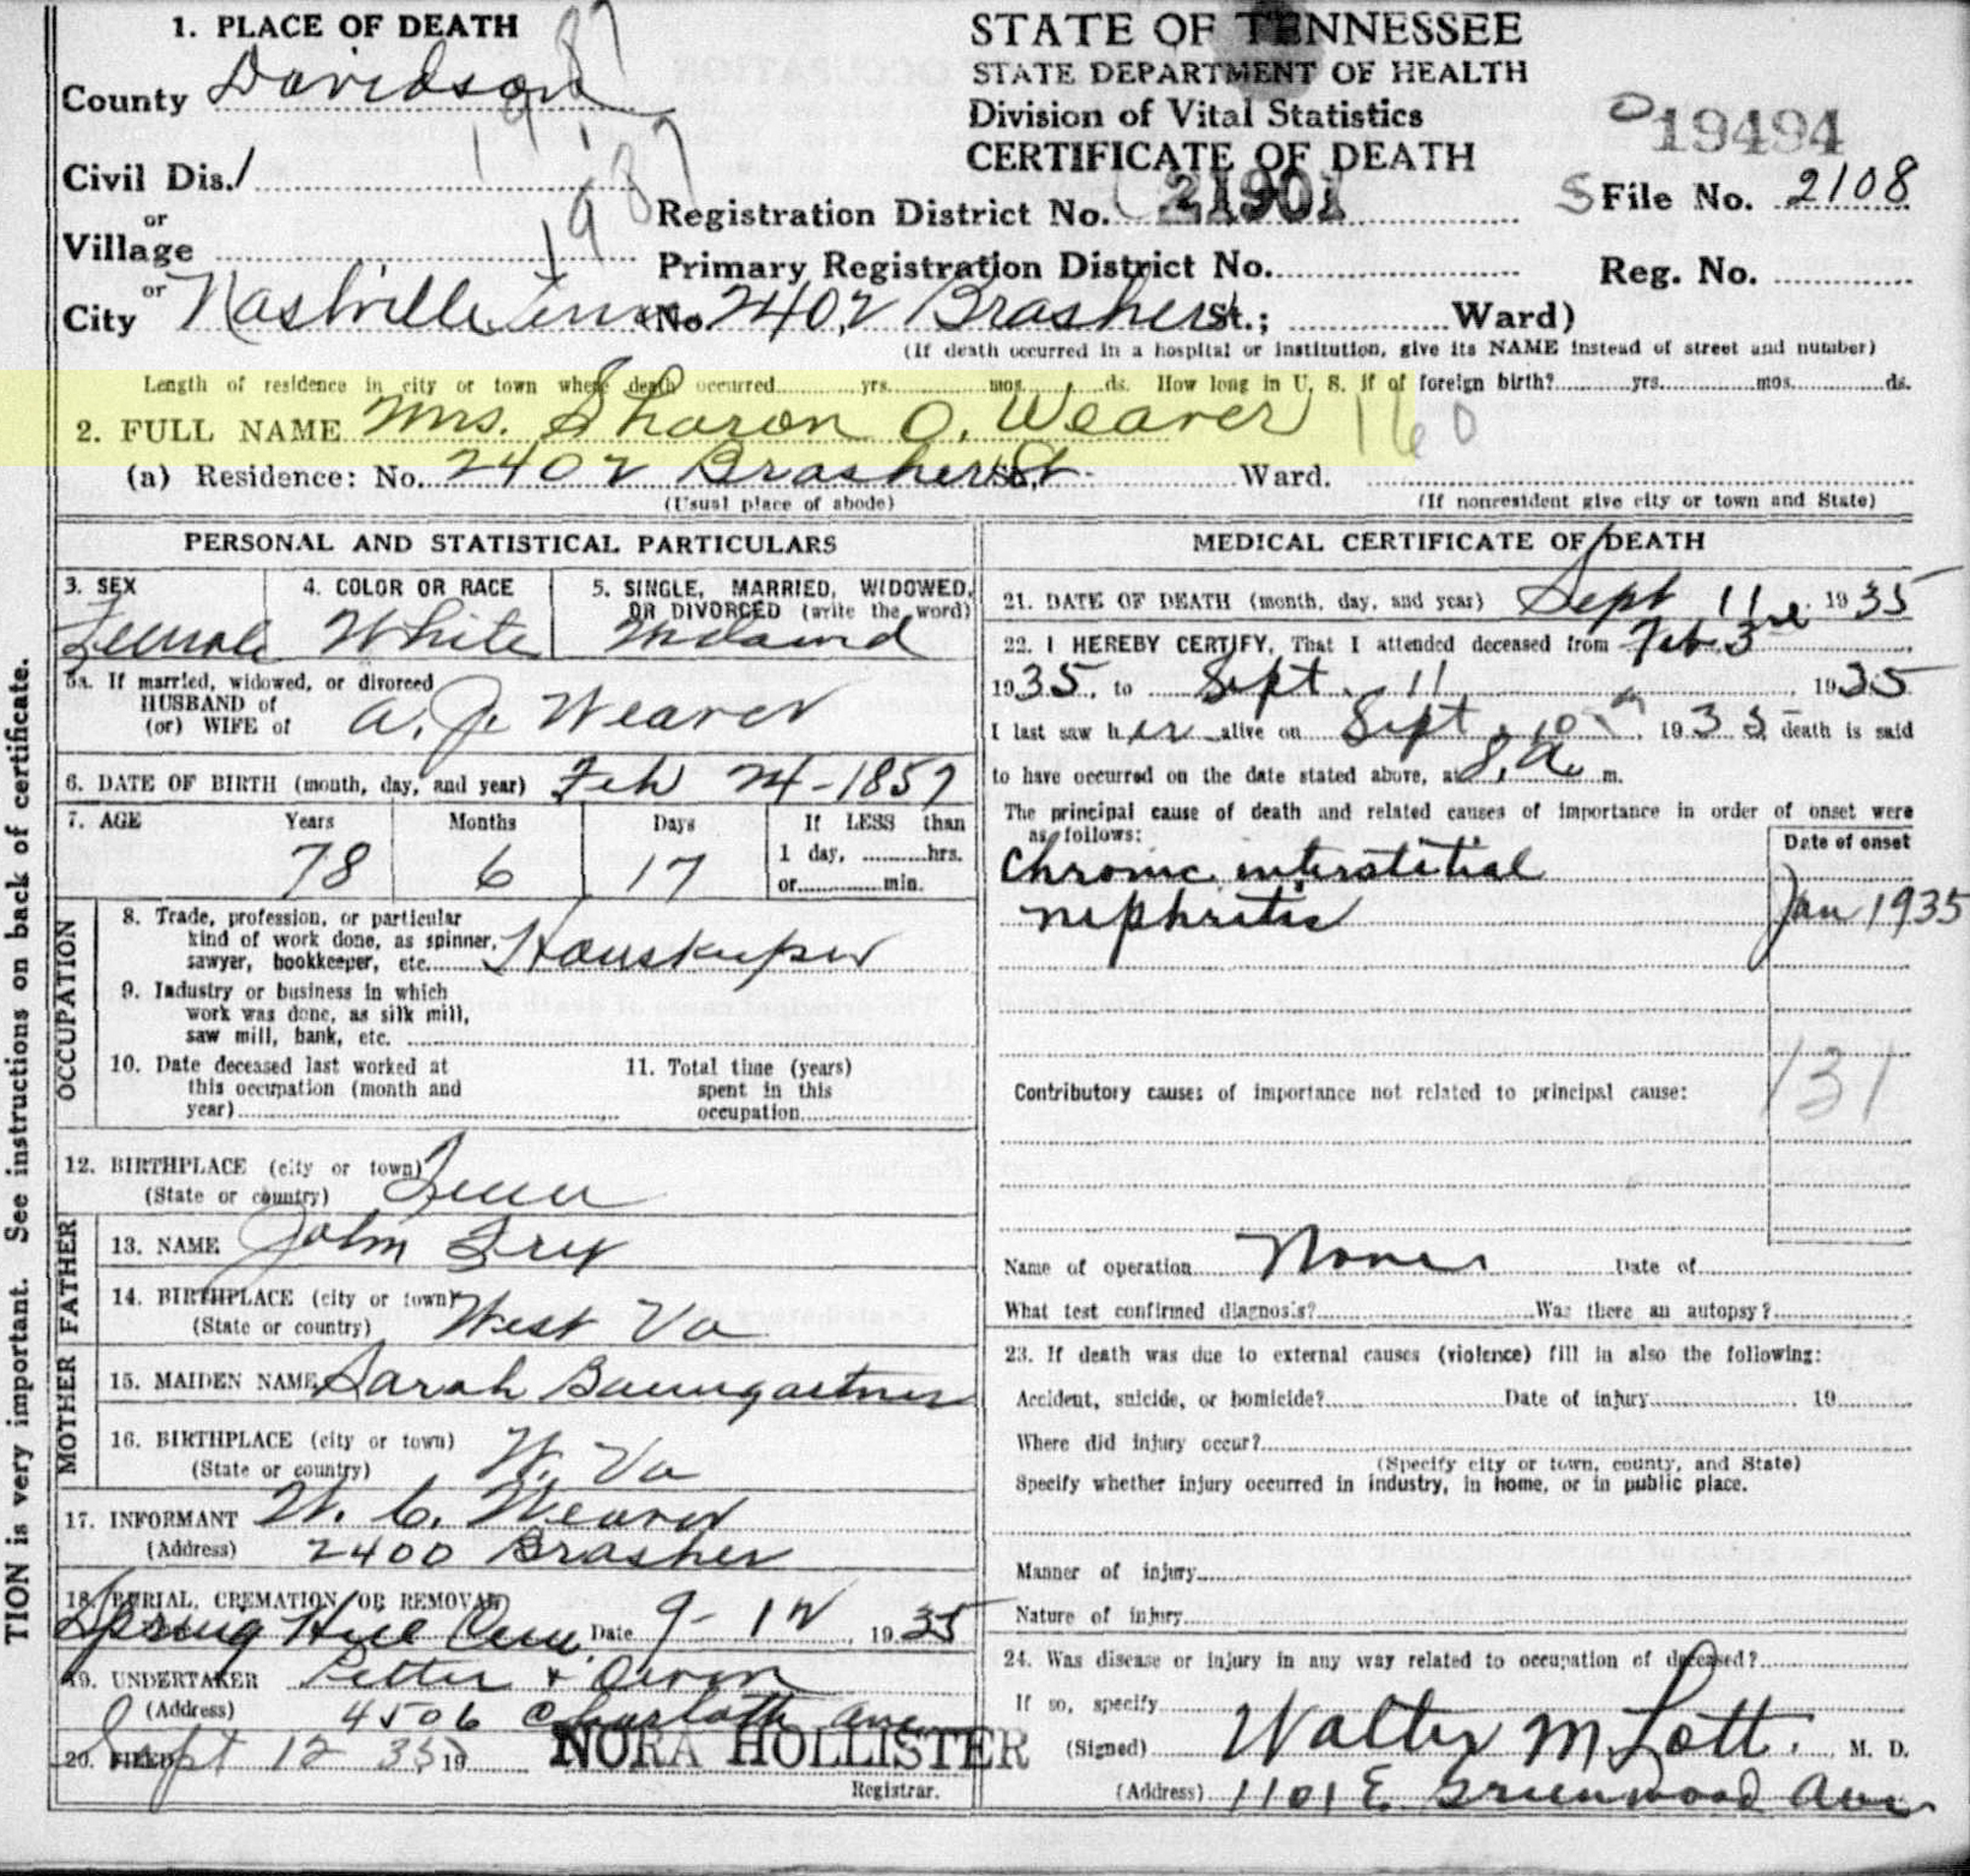 1. PLACE OF DEATH
STATE OF TENNESSEE
STATE DEPARTMENT OF HEALTH
Division of Vital Statistics
CERTIFICATE OF DEATH
19494
County Davidson
Civil Dis. 1
or
Village
or
City Nashville Tenn No. 2402 Brasher St.; Ward)
Registration District No. 21901
File No. 2108
Primary Registration District No.
Reg. No.
(If death occurred in a hospital or institution, give its NAME instead of street and number)
Length of residence in city or town where death occurred yrs. mos. ds. How long in U. S. if of foreign birth? yrs. mos. ds.
2. FULL NAME Mrs. Sharon O. Weaver 160
(a) Residence: No. 2402 Brasher St. Ward.
(Usual place of abode) (If nonresident give city or town and State)
PERSONAL AND STATISTICAL PARTICULARS
3. SEX 4. COLOR OR RACE 5. SINGLE, MARRIED, WIDOWED, OR DIVORCED (write the word)
Female White
5a. If married, widowed, or divorced
HUSBAND of
(or) WIFE of A. J. Weaver
6. DATE OF BIRTH (month, day, and year) Feb 24-1857
7. AGE Years Months Days If LESS than
1 day, hrs.
or min.
78 6 17
OCCUPATION
8. Trade, profession, or particular
kind of work done, as spinner,
sawyer, bookkeeper, etc. Houskeeper
9. Industry or business in which
work was done, as silk mill,
saw mill, bank, etc.
10. Date deceased last worked at
this occupation (month and
year)
11. Total time (years)
spent in this
occupation
12. BIRTHPLACE (city or town)
(State or country) Tenn
FATHER
13. NAME John Frey
14. BIRTHPLACE (city or town)
(State or country) West Va
MOTHER
15. MAIDEN NAME Sarah Baumgartner
16. BIRTHPLACE (city or town)
(State or country) W. Va
17. INFORMANT W. C. Weaver
(Address) 2400 Brasher
18. BURIAL, CREMATION OR REMOVAL
Spring Hill Cem. Date 9-12, 1935
19. UNDERTAKER
(Address) 4506 Charlotte Ave
20. FILED Sept 12 35 19
NORA HOLLISTER
Registrar.
MEDICAL CERTIFICATE OF DEATH
21. DATE OF DEATH (month, day, and year) Sept 11, 1935
22. I HEREBY CERTIFY, That I attended deceased from Feb 3rd
1935, to Sept. 11, 1935
I last saw her alive on Sept. 10, 1935 death is said
to have occurred on the date stated above, at 8. A. m.
The principal cause of death and related causes of importance in order of onset were
as follows:
Date of onset
Chronic interstitial
nephritis Jan 1935
131
Contributory causes of importance not related to principal cause:
Name of operation None Date of
What test confirmed diagnosis? Was there an autopsy?
23. If death was due to external causes (violence) fill in also the following:
Accident, suicide, or homicide? Date of injury 19
Where did injury occur?
(Specify city or town, county, and State)
Specify whether injury occurred in industry, in home, or in public place.
Manner of injury
Nature of injury
24. Was disease or injury in any way related to occupation of deceased?
If so, specify
(Signed) Walter M Lott, M. D.
(Address) 1101 E. Greenwood Ave
TION is very important. See instructions on back of certificate.